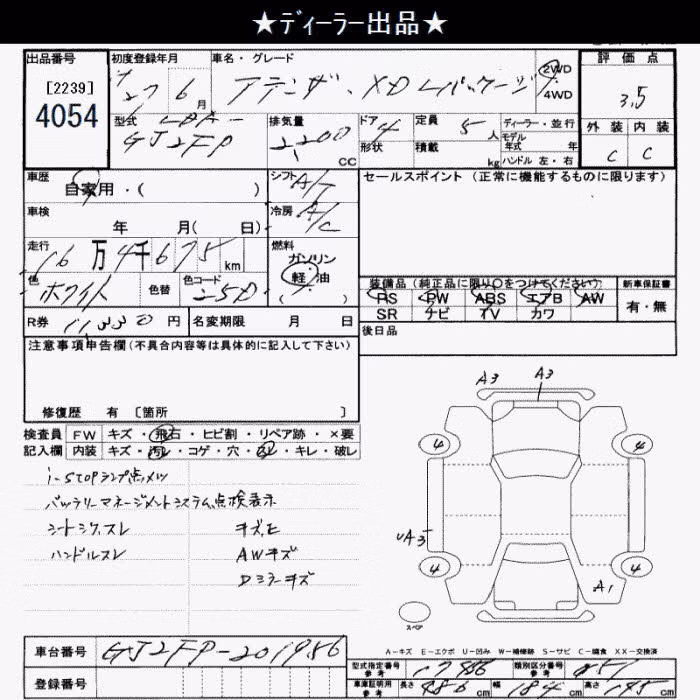 ★ディーラー出品★
出品番号 初度登録年月 車名・グレード 評価点
[2239] 27 6月 アテンザ・XD Lパッケージ 2WD 3.5
4054 4WD
型式 LDA- 排気量 ドア 定員 ディーラー・並行 外装 内装
GJ2FP 2200 CC 4 5人 モデル年式 年 C C
形状 積載 kg ハンドル 左・右
車歴 シフト セールスポイント (正常に機能するものに限ります)
自家用・( ) A/T
車検 冷房
年 月( 日) A/C
走行 燃料
16万4千675km ガソリン
色 色替 色コード 軽油 装備品 (純正品に限り○をつけてください) 新車保証書
ホワイト 25D ( ) PS PW ABS エアB AW 有・無
R券 11,330円 名変期限 月 日 SR ナビ TV カワ
注意事項申告欄(不具合内容等は具体的に記入して下さい) 後日品
修復歴 有 [箇所 ]
検査員 FW キズ・飛石・ヒビ割・リペア跡・×要
記入欄 内装 キズ・汚レ・コゲ・穴・スレ・キレ・破レ
i-STOPランプ点メツ
バッテリーマネージメントシステム点検表示
シートシワ、スレ キズ、ヒ
ハンドルスレ AWキズ
Dミラーキズ
A3 A3
4 4
UA3
4 4
A1
スペア
A-キズ E-エクボ U-凹み W-補修跡 S-サビ C-腐食 XX-交換済
車台番号 GJ2FP-201986
登録番号
型式指定番号 参考 17986 類別区分番号 参考 051
車庫証明用 参考 長さ 486cm 幅 184cm 高さ 145cm